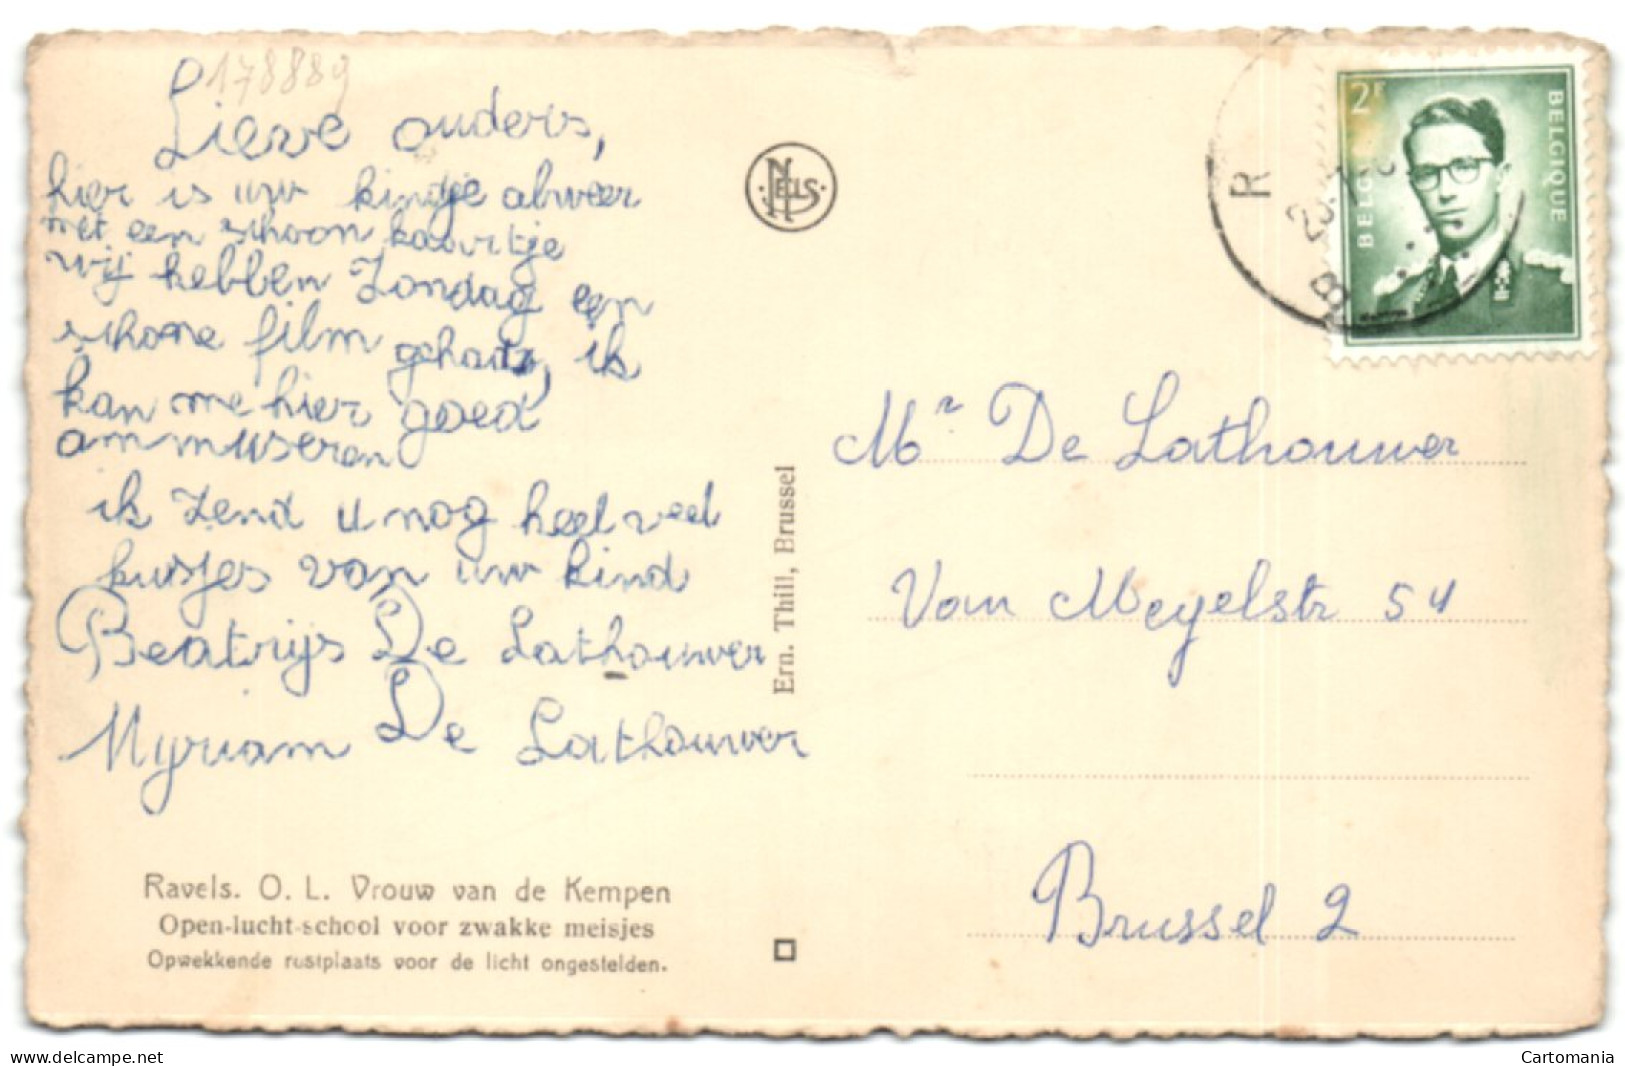 178889
Lieve ouders,
hier is uw kindje alweer
met een schoon kaartje
wij hebben Zondag een
schone film gehad, ik
kan me hier goed
ammuseren
ik zend u nog heel veel
kusjes van uw kind
Beatrijs De Lathouwer
Myriam De Lathouwer
Ravels. O. L. Vrouw van de Kempen
Open-lucht-school voor zwakke meisjes
Opwekkende rustplaats voor de licht ongestelden.
NELS
Ern. Thill, Brussel
2F
BELGIQUE
BELG
R
B
Mr De Lathouwer
Van Meyelstr 54
Brussel 2
delcampe.net
Cartomania